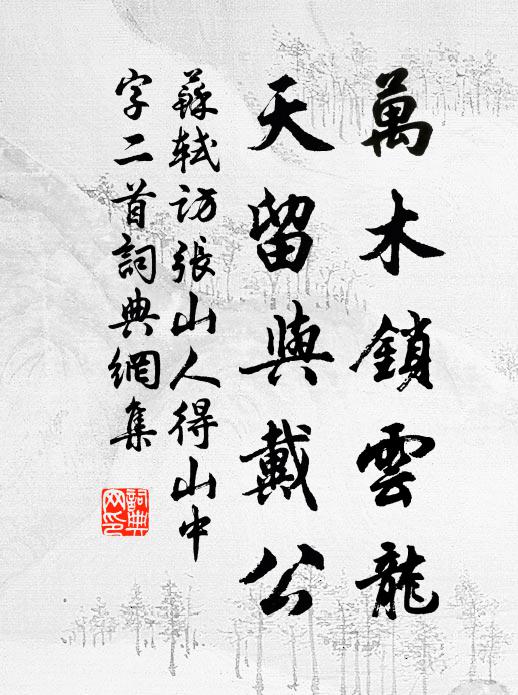 萬木鎖雲龍
天留與戴公
蘇軾訪張山人得山中
字二首詞典網集
詞典网印